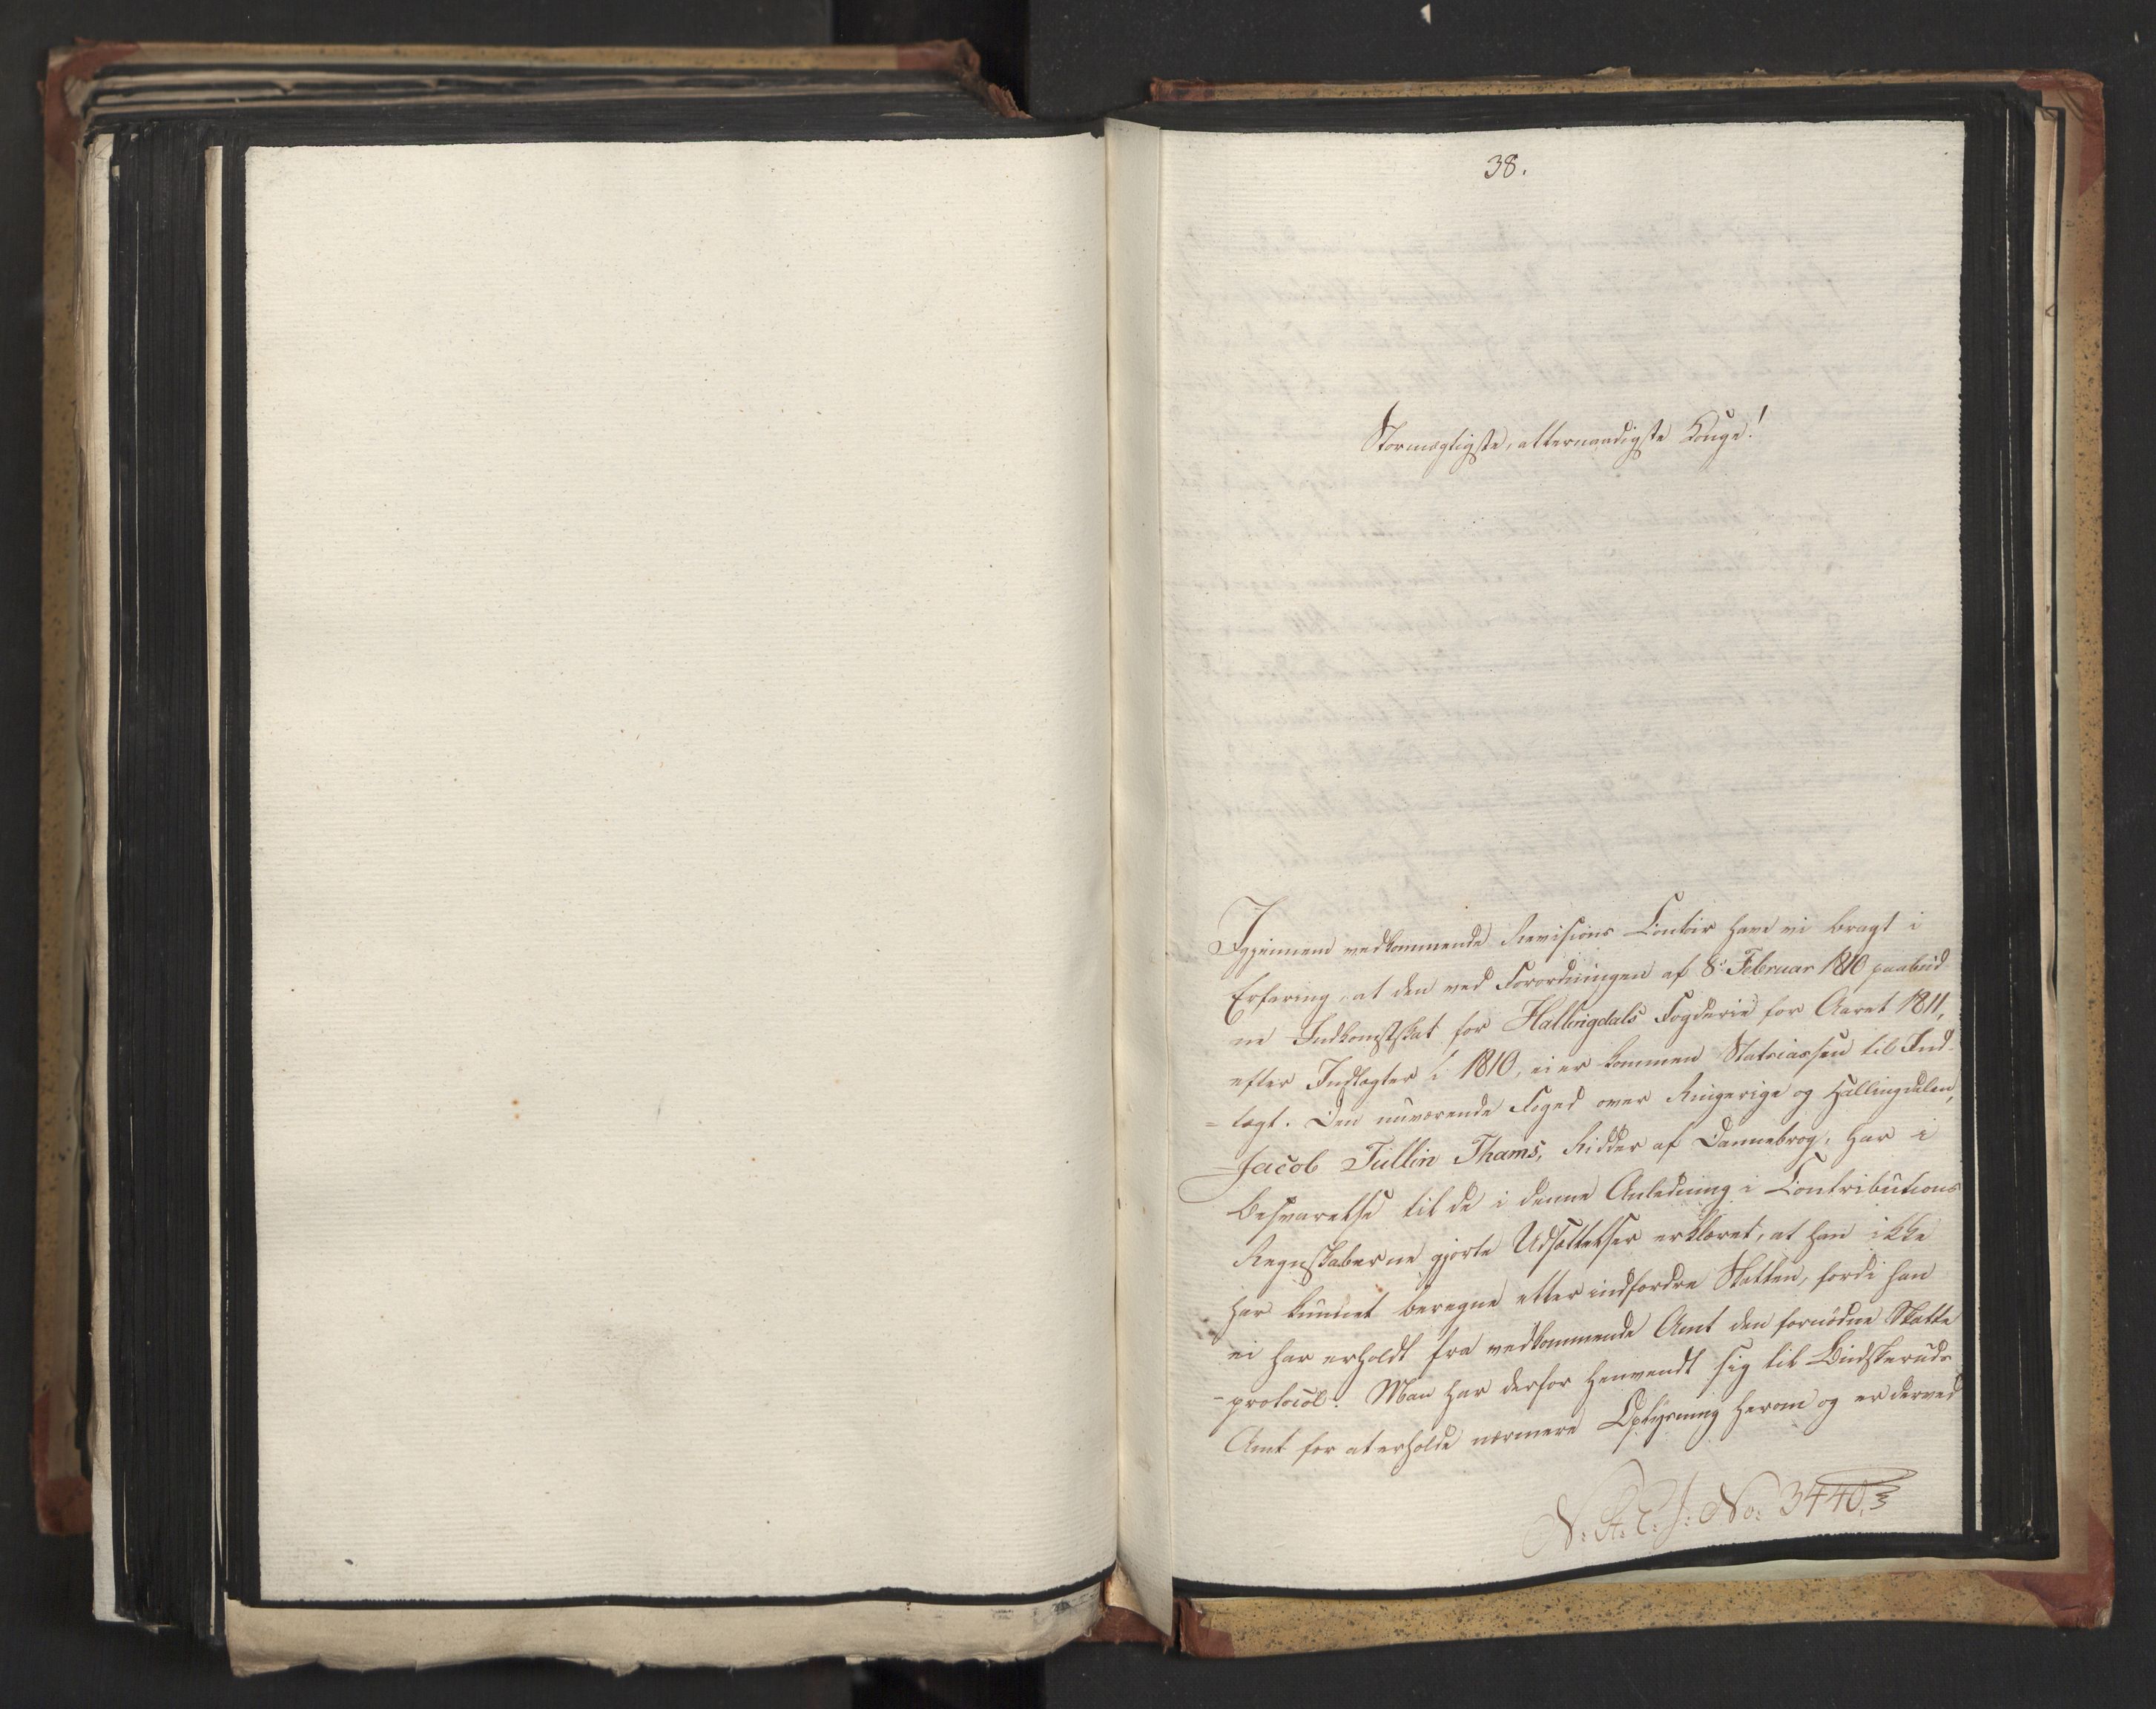 38.
Stormægtigste, allernaadigste Konge!
Igjennem vedkommende Revisions Contoir have vi bragt i
Erfaring, at den ved Forordningen af 8de Februar 1810 paabud
ne Indkomstskat for Hallingdals Fogderie for Aaret 1811,
efter Indtægter i 1810, ei er kommen Statscassen til Ind-
=tægt. Den nuværende Foged over Ringerige og Hallingdalen,
Jacob Tullin Thams, Ridder af Dannebrog, har i
Besvarelse til de i denne Anledning i Contributions
Regnskaberne gjorte Udsættelser erklæret, at han ikke
har kunnet beregne eller indfordre Skatten, fordi han
ei har erholdt fra vedkommende Amt den fornödne Skatte
-protocol. Man har derfor henvendt sig til Buskeruds
Amt for at erholde nærmere Oplysning herom og er derved
No: 3440.